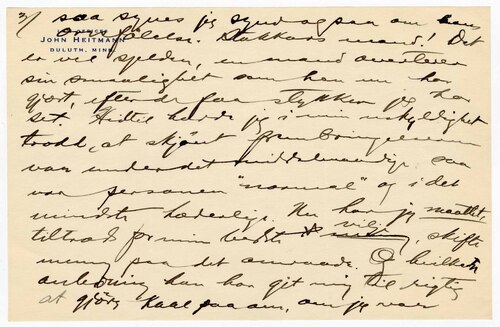 3/ saa synes jeg synd ogsaa om hans
JOHN HEITMANN
DULUTH, MINN.
følelse. Stakkars mand! Det
er vel sjelden, en mand
sin som han nu har
gjort, efter de faa stykker jeg har
set. Hidtil havde jeg i min uskyldighet
trodd, at skjønt frembringelsen
var under det middelmaadige, saa
var personen "normal" og i det
mindste hæderlige. Nu har jeg maattet,
tiltrods for min bedste vilje, skifte
mening paa det omraade. Og hvilken
anledning han har git mig til rigtig
at gjøre kaal paa am, om jeg var